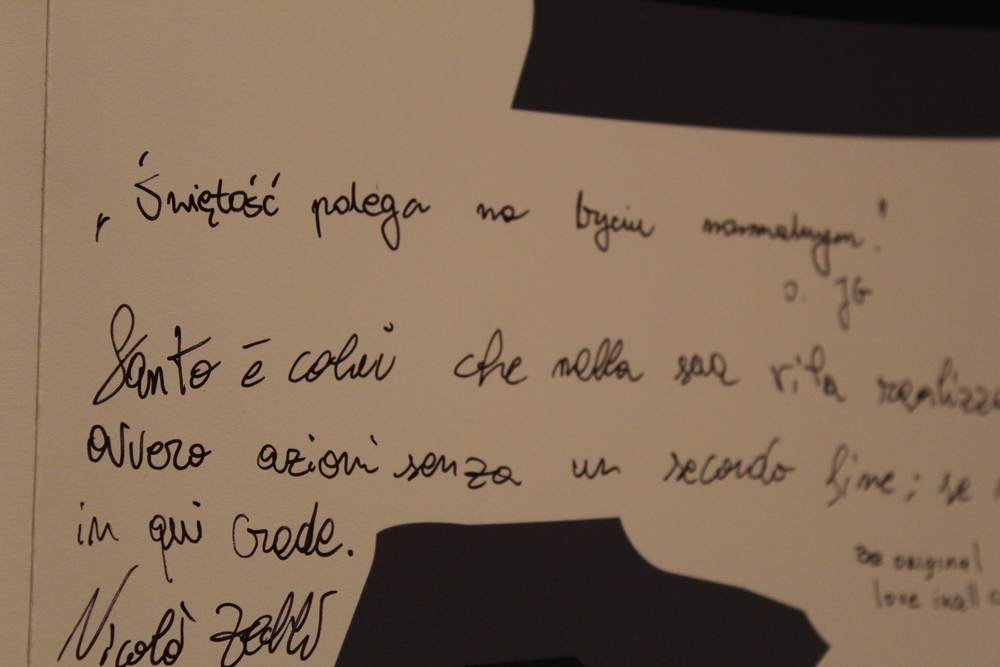 „Świętość polega na byciu normalnym."
o. JG
Santo è colui che nella sua vita realizza
ovvero azioni senza un secondo fine; se
in qui crede.
Nicolò
be original
love in all